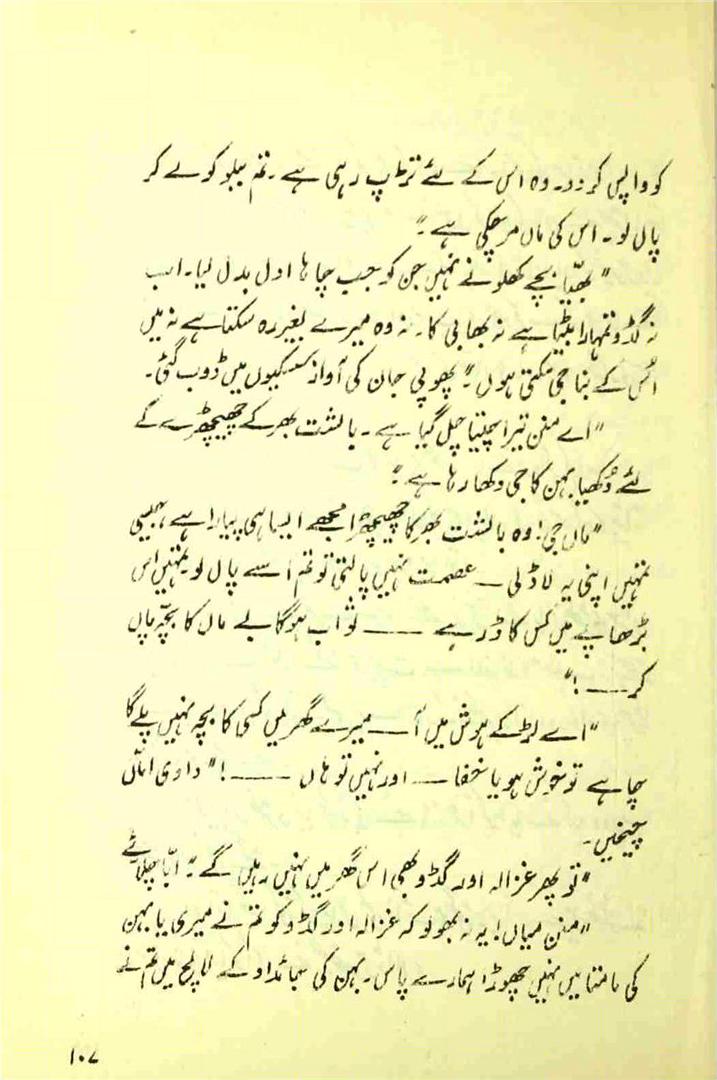 کو واپس کر دو۔ وہ اس کے لئے تڑپ رہی ہے۔ تم ببلو کو لے کر
پال لو۔ اس کی ماں مر چکی ہے۔"
"بھیّا بچے کھلونے نہیں جن کو جب چاہا ادل بدل لیا۔ اب
نہ گڈو تمہارا بیٹا ہے نہ بھابی کا۔ نہ وہ میرے بغیر رہ سکتا ہے نہ میں
اُس کے بنا جی سکتی ہوں۔" پھوپی جان کی آواز سسکیوں میں ڈوب گئی۔
"اے منن تیرا چل گیا ہے۔ بالشت بھر کے چھیچھڑے کے
لئے دُکھیا بہن کا جی دکھا رہا ہے۔"
"ماں جی! وہ بالشت بھر کا چھیچھڑا مجھے ایسا ہی پیارا ہے جیسی
تمہیں اپنی یہ لاڈلی — عصمت نہیں پالتی تو تم اسے پال لو تمہیں اس
بڑھاپے میں کس کا ڈر ہے — ثواب ہوگا بے ماں کا بچّہ پال
کر — !"
"اے لڑکے ہوش میں آ — میرے گھر میں کسی کا بچہ نہیں پلے گا
چاہے تو خوش ہو یا خفا — اور نہیں تو ہاں — !" دادی اماں
چیخیں۔
"تو پھر غزالہ اور گڈو بھی اس گھر میں نہیں رہیں گے۔" ابّا چلائے
"منن میاں! یہ نہ بھولو کہ غزالہ اور گڈو کو تم نے میری یا بہن
کی مامتا میں نہیں چھوڑا ہمارے پاس۔ بہن کی جائداد کے لالچ میں تم نے
۱۰۷